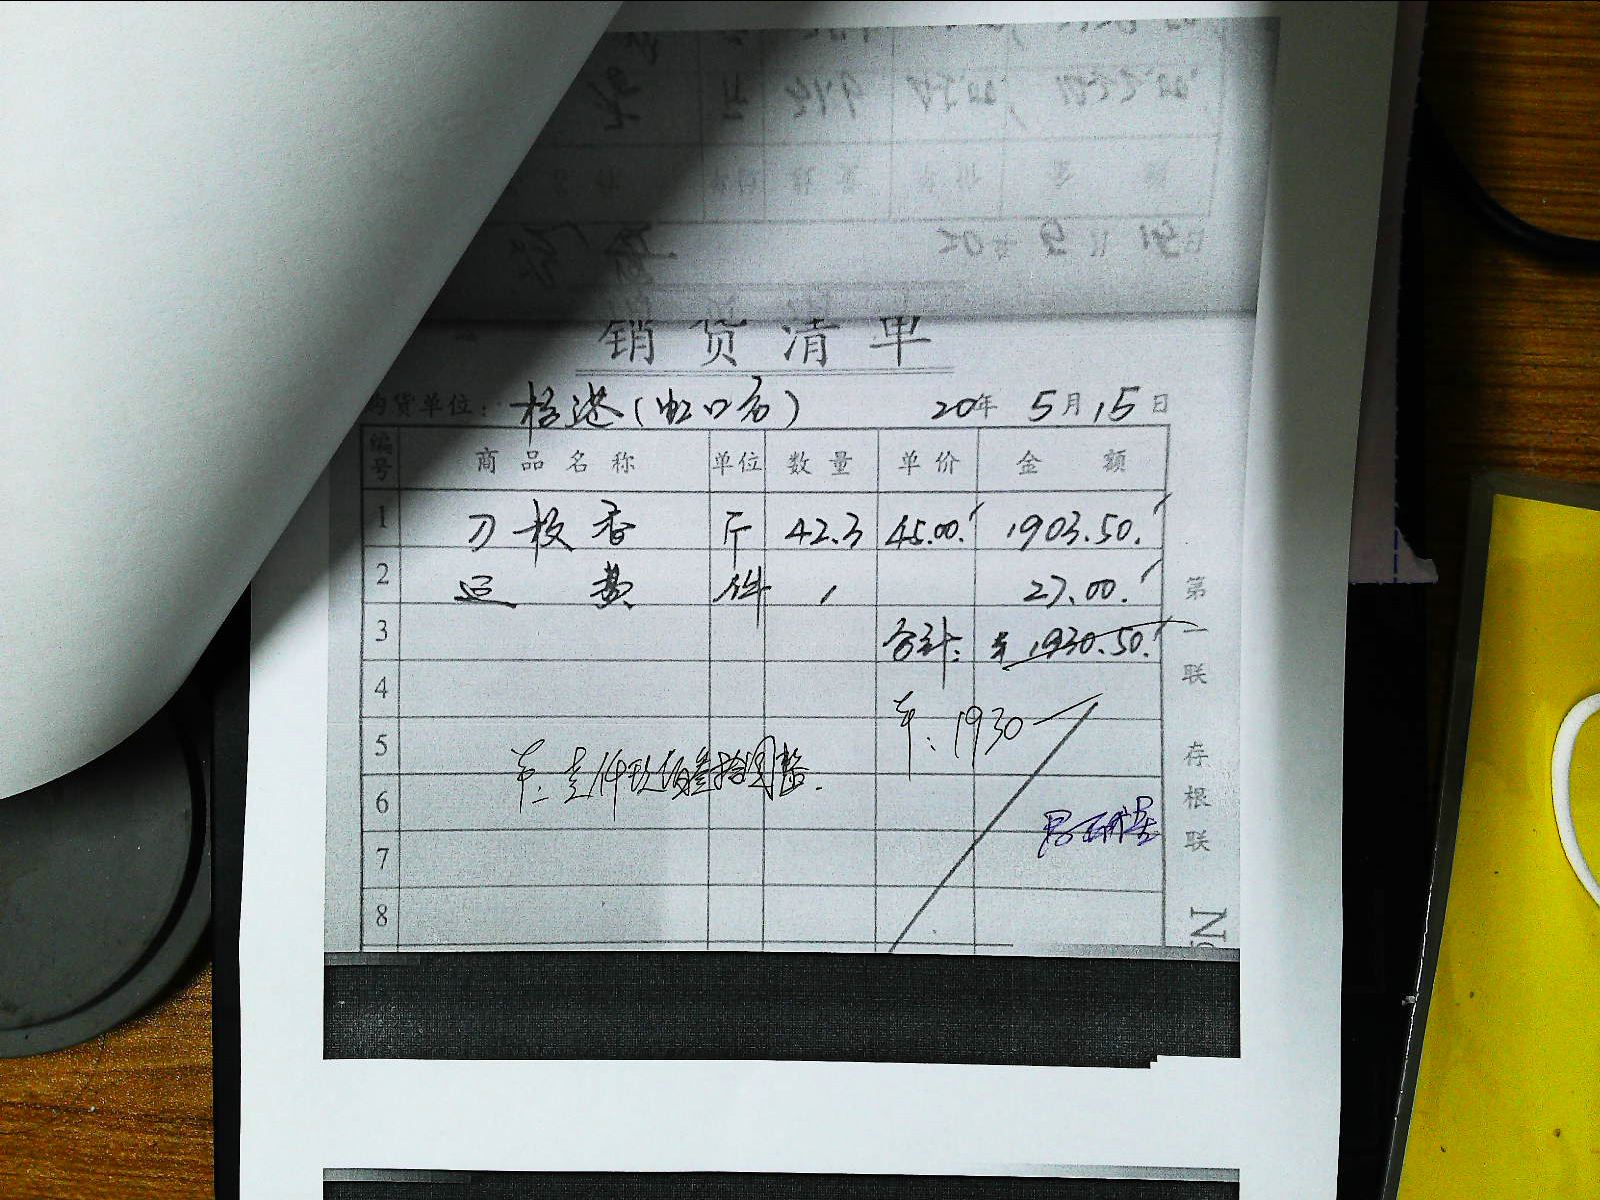 销货清单
购货单位: 杨港(虹口店) 20年 5月15日
编号 商品名称 单位 数量 单价 金额
1 刀板香 斤 42.3 45.00 1903.50
2 运费 件 1 27.00
3 合计: ¥1930.50
4
5 1930
壹仟玖佰叁拾圆整.
6
7
8
第一联 存根联